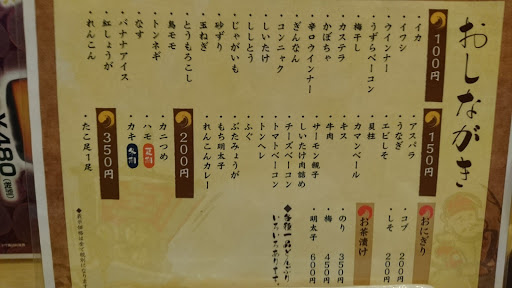 おしながき
100円
・イカ
・イワシ
・ウインナー
・うずらベーコン
・梅干し
・カステラ
・かぼちゃ
・辛口ウインナー
・ぎんなん
・コンニャク
・しいたけ
・ししとう
・じゃがいも
・砂ずり
・玉ねぎ
・とうもろこし
・鳥モモ
・トンネギ
・なす
・バナナアイス
・紅しょうが
・れんこん
150円
・アスパラ
・うなぎ
・エビしそ
・貝柱
・カマンベール
・キス
・牛肉
・サーモン親子
・しいたけ肉詰め
・チーズベーコン
・トマトベーコン
・トンヘレ
・ふぐ
・ぶたみょうが
・もち明太子
・れんこんカレー
200円
・カニつめ
・ハモ
・カキ 冬期
350円
・たこ足1尾
おにぎり
・コブ 200円
・しそ 200円
お茶漬け
・のり 350円
・梅 450円
・明太子 600円
◆各種一品どんぶり
いろいろあります。
¥480
(税別)